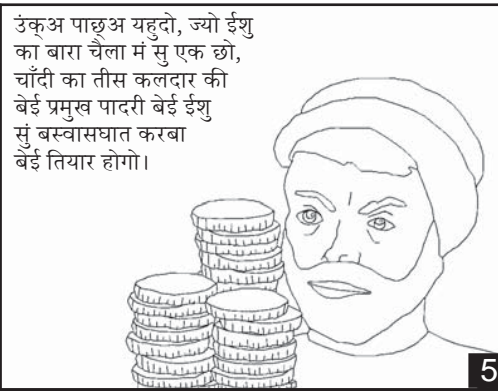 उंक्अ पाछ्अ यहुदो, ज्यो ईशु
का बारा चैला मं सु एक छो,
चाँदी का तीस कलदार की
बेई प्रमुख पादरी बेई ईशु
सुं बस्वासघात करबा
बेई तियार होगो।
5